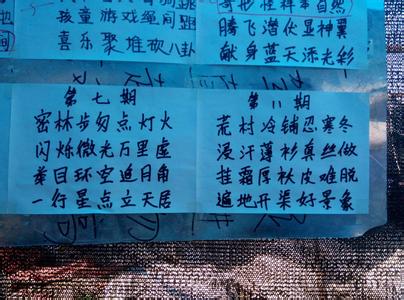 孩童游戏绳间跳
喜乐聚堆砍八卦
腾飞潜伏显神翼
献身蓝天添光彩
第七期
密林步匀点灯火
闪烁微光万里虚
举目环空追月角
一行星点立天居
第八期
荒村冷铺忍寒冬
浸汗薄衫真丝做
挂霜厚秋皮难脱
遍地开渠好景象